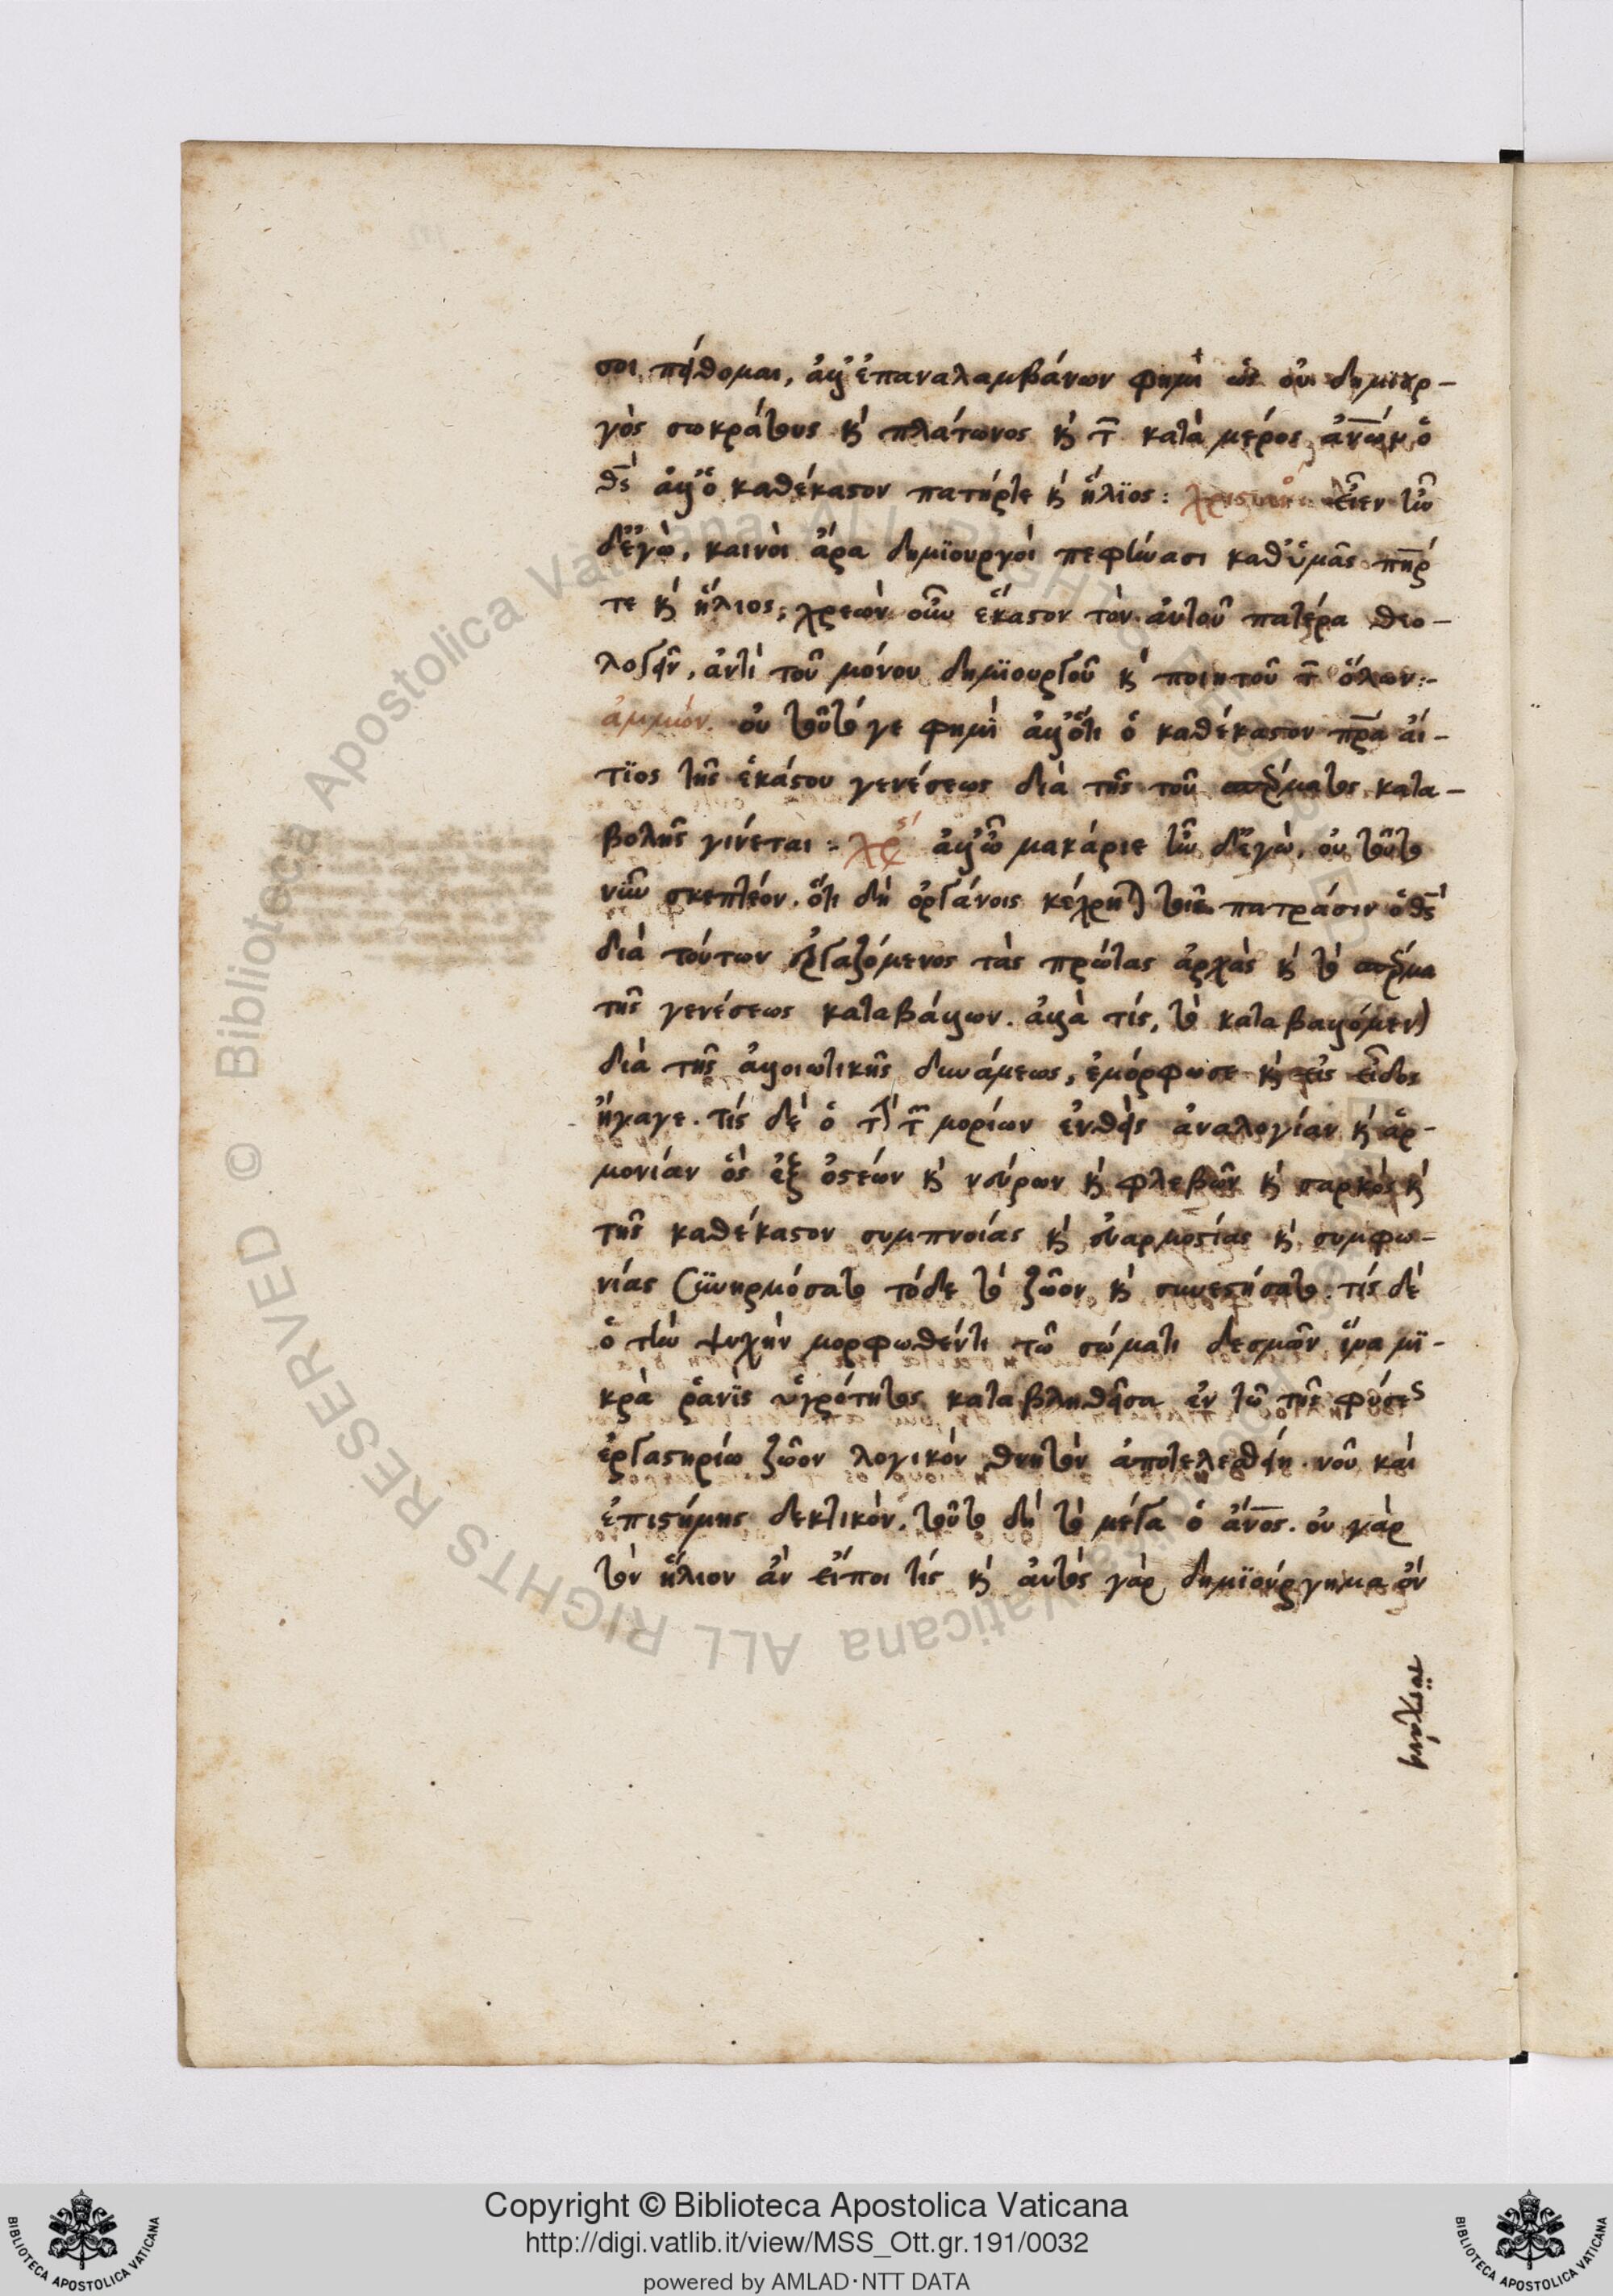 σοι πείθομαι, ἀλλ' ἐπαναλαμβάνων φημὶ ὡς οὐ δημιουρ-
γὸς σωκράτους κ̀ πλάτωνος κ̀ τ̃ κατὰ μέρος ἀν̅ω̅ν ὁ
θς̅ ἀλλ' ὁ καθέκαστον πατήρτε κ̀ ἥλϊος: χριστιανός: εἶεν ἦν
δ' ἐγὼ, καινοὶ ἄρα δημϊουργοὶ πεφήνασι καθ' ὑμᾶς πη̅ρ
τε κ̀ ἥλιος, χρεὼν οὖν ἕκαστον τὸν αὐτοῦ πατέρα θεο-
λογεῖν, ἀντὶ τοῦ μόνου δημϊουργοῦ κ̀ ποιητοῦ τ̃ ὅλων:-
ἀμμών. οὐ τοῦτό γε φημὶ ἀλλ' ὅτι ὁ καθέκαστον πρ̅α αἴ-
τϊος τῆς ἑκάστου γενέσεως διὰ τῆς τοῦ σπέρματος κατα-
βολῆς γίνεται: χρ ἀλλ' ὦ μακάριε ἦν δ' ἐγὼ, οὐ τοῦτο
νῦν σκεπτέον. ὅτι δὴ ὀργάνοις κέχρηται τοῖς πατράσιν ὁ θς̅
διὰ τούτων ἐργαζόμενος τὰς πρώτας ἀρχὰς κ̀ τὸ σπέρμα
τῆς γενέσεως καταβάλλων. ἀλλὰ τίς, τὸ καταβαλλόμενον
διὰ τῆς ἀλλοιωτικῆς δυνάμεως, ἐμόρφωσε κ̀ εἰς εἶδος
ἤγαγε. τίς δὲ ὁ τὴν τ̃ μορίων ἐνθεὶς ἀναλογίαν κ̀ ἁρ-
μονίαν ὃς ἐξ ὀστέων κ̀ νεύρων κ̀ φλεβῶν κ̀ σαρκὸς κ̀
τῆς καθέκαστον συμπνοίας κ̀ εὐαρμοστίας κ̀ συμφω-
νίας συνηρμόσατο τόδε τὸ ζῶον κ̀ συνεστήσατο. τίς δὲ
ὁ τὴν ψυχὴν μορφωθέντι τῶ σώματι δεσμῶν ἵνα μϊ-
κρὰ ῥανῒς ὑγρότητος καταβληθεῖσα ἐν τῶ τῆς φύσεως
ἐργαστηρίω ζῶον λογικὸν θνητὸν ἀποτελεσθείη. νοῦ καὶ
ἐπιστήμης δεκτικὸν, τοῦτο δὴ τὸ μέγα ὁ ἄν̅ο̅ς. οὐ γὰρ
τὸν ἥλιον ἂν εἴποι τίς κ̀ αὐτὸς γὰρ δημϊούργημα ὂν